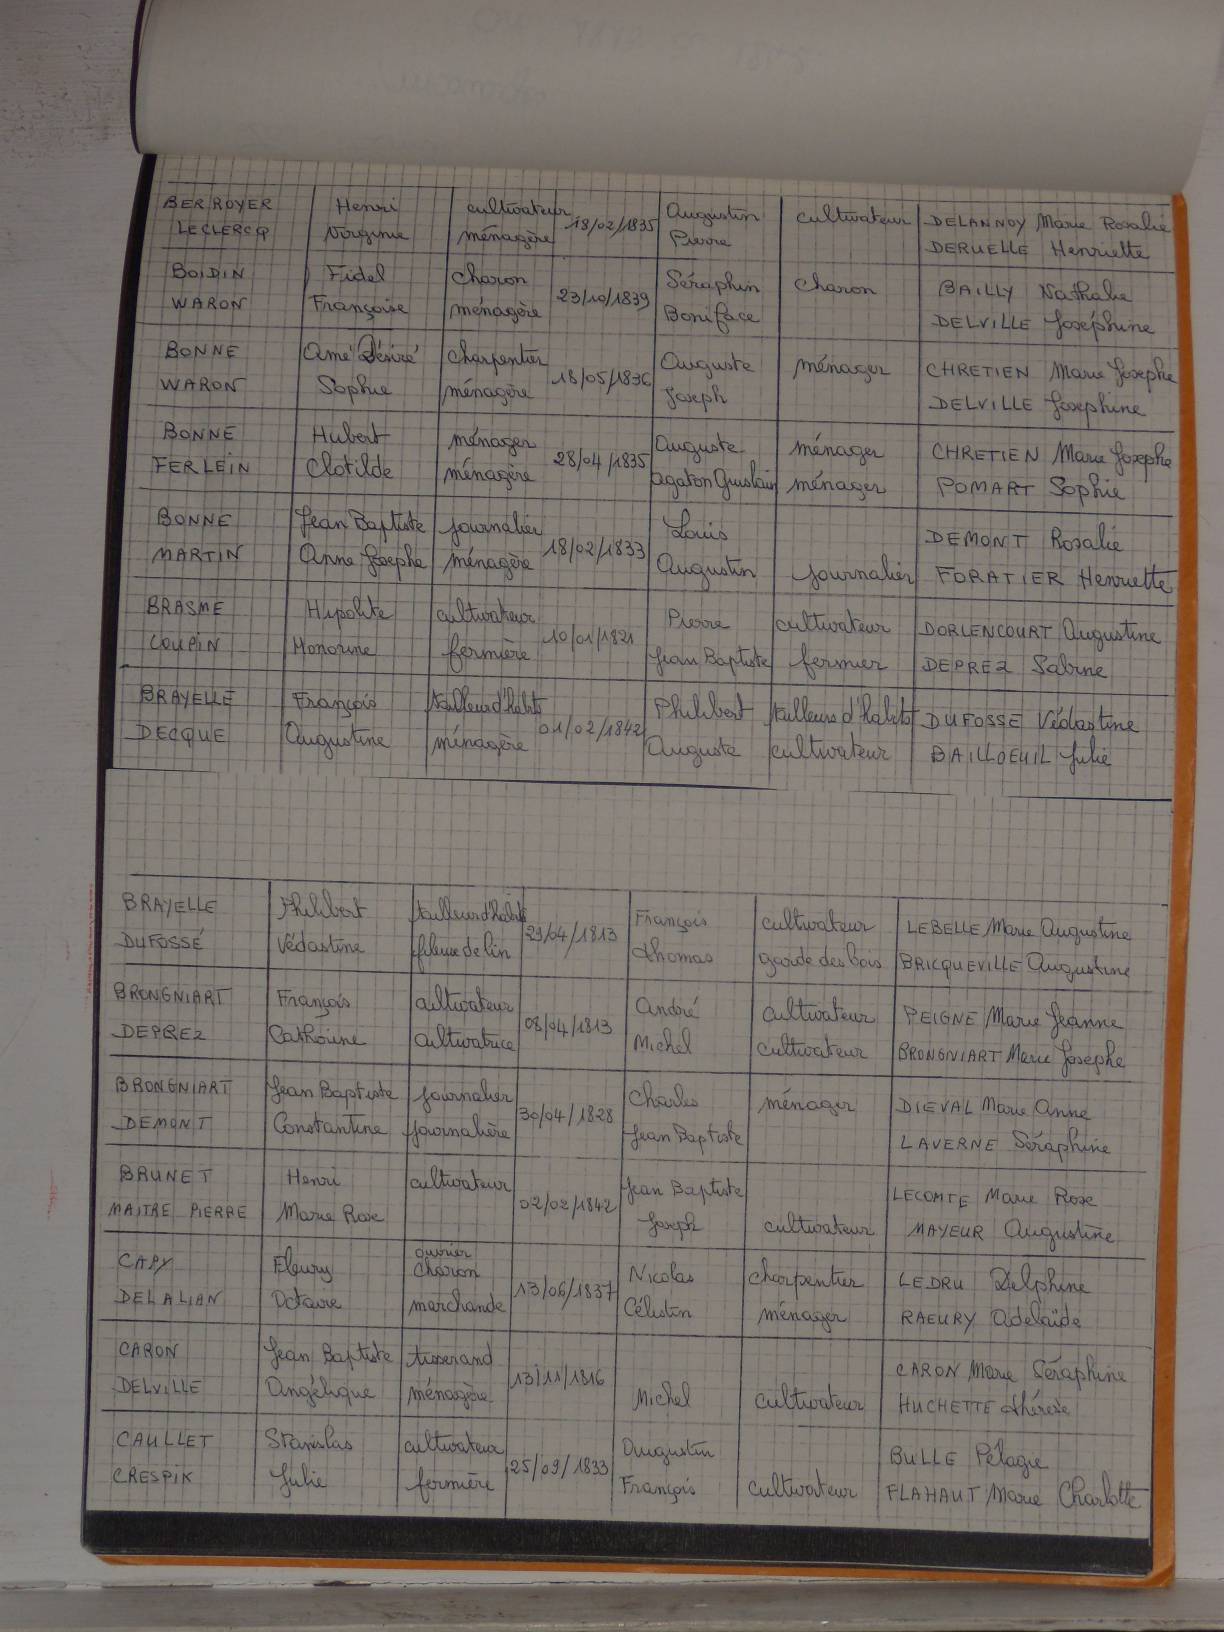 BERROYER Henri cultivateur 18/02/1835 Augustin cultivateur DELANNOY Marie Rosalie
LECLERCQ Virginie ménagère Pierre DERUELLE Henriette
BOIDIN Fidel charon 23/10/1839 Séraphin charon BAILLY Nathalie
WARON Françoise ménagère Boniface DELVILLE Joséphine
BONNE Amé Désiré charpentier 18/05/1836 Auguste ménager CHRETIEN Marie Josephe
WARON Sophie ménagère Joseph DELVILLE Josephine
BONNE Hubert ménager 28/04/1835 Auguste ménager CHRETIEN Marie Josephe
FERLEIN Clotilde ménagère Agaton Guislain ménager POMART Sophie
BONNE Jean Baptiste journalier 18/02/1833 Louis DEMONT Rosalie
MARTIN Anne Josephe ménagère Augustin journalier FORATIER Henriette
BRASME Hipolite cultivateur 10/01/1821 Pierre cultivateur DORLENCOURT Augustine
COUPIN Honorine fermière Jean Baptiste fermier DEPREZ Sabine
BRAYELLE François tailleur d'habits 01/02/1842 Philibert tailleurs d'habits DUFOSSE Védastine
DECQUE Augustine ménagère Auguste cultivateur BAILLOEUIL Julie
BRAYELLE Philibert tailleur d'habits 29/04/1813 François cultivateur LEBELLE Marie Augustine
DUFOSSÉ Védastine fileuse de lin Thomas garde des bois BRICQUEVILLE Augustine
BRONGNIART François cultivateur 08/04/1813 André cultivateur PEIGNE Marie Jeanne
DEPREZ Catherine cultivatrice Michel cultivateur BRONGNIART Marie Josephe
BRONGNIART Jean Baptiste journalier 30/04/1828 Charles ménager DIEVAL Marie Anne
DEMONT Constantine journalière Jean Baptiste LAVERNE Séraphine
BRUNET Henri cultivateur 02/02/1842 Jean Baptiste LECOMTE Marie Rose
MAITRE PIERRE Marie Rose Joseph cultivateur MAYEUR Augustine
CAPY Fleury ouvrier charon 13/06/1837 Nicolas charpentier LEDRU Delphine
DELALIAN Octavie marchande Célestin ménager RAEURY Adelaïde
CARON Jean Baptiste tisserand 13/11/1816 CARON Marie Séraphine
DELVILLE Angélique ménagère Michel cultivateur HUCHETTE thérèse
CAULLET Stanislas cultivateur 25/09/1833 Augustin BULLE Pélagie
CRESPIK Julie fermière François cultivateur FLAHAUT Marie Charlotte